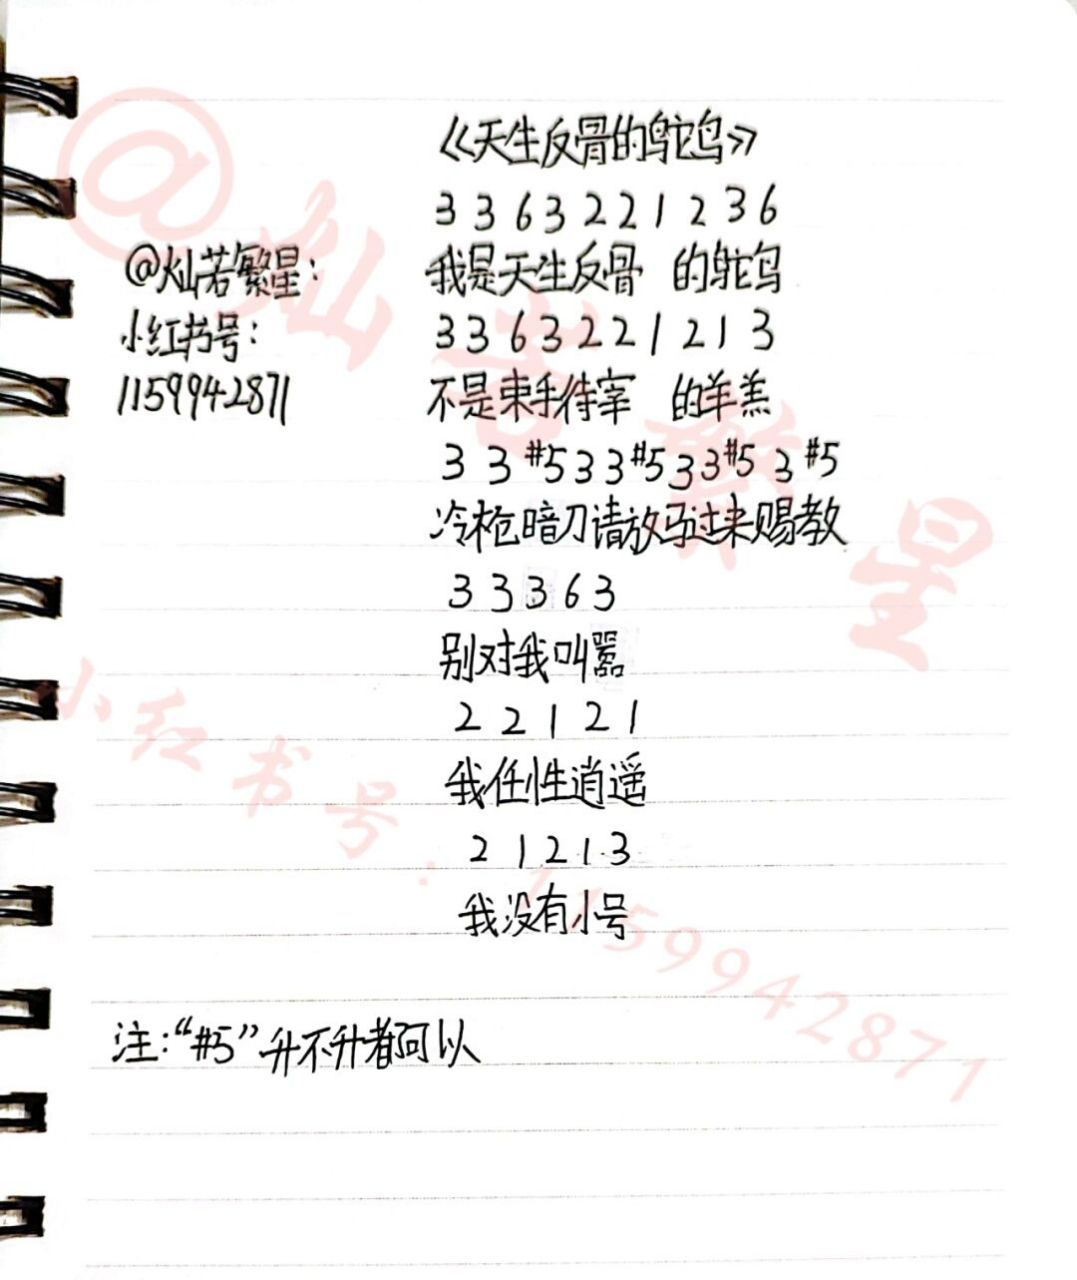 《天生反骨的鸵鸟》
3 3 6 3 2 2 1 2 3 6
我是天生反骨 的鸵鸟
3 3 6 3 2 2 1 2 1 3
不是束手待宰 的羊羔
3 3 #5 3 3 #5 3 3 #5 3 #5
冷枪暗刀请放马过来赐教
3 3 3 6 3
别对我叫嚣
2 2 1 2 1
我任性逍遥
2 1 2 1 3
我没有小号
@灿若繁星:
小红书号:
1159942871
注:“#5”升不升都可以
@灿若繁星
小红书号:1159942871